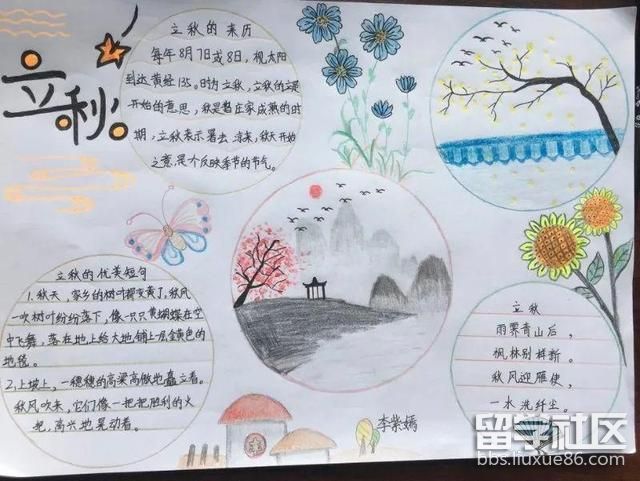 立秋
立秋的来历
每年8月7日或8日,视太阳
到达黄经135°时为立秋,立秋的立是
开始的意思,秋是指庄家成熟的时
期,立秋表示暑去凉来,秋天开始
之意,是个反映季节的节气。
立秋的优美短句
1.秋天,家乡的树叶都变黄了,秋风
一吹树叶纷纷落下,像一只只黄蝴蝶在空
中飞舞,落在地上给大地铺上一层金黄色的
地毯。
2.上坡上,一穗穗的高粱高傲地矗立着。
秋风吹来,它们像一把把胜利的火
把,高兴地晃动着。
立秋
雨霁青山后,
枫林别样新。
秋风迎雁使,
一水洗纤尘。
李紫嫣
留学社区
bbs.liuxue86.com